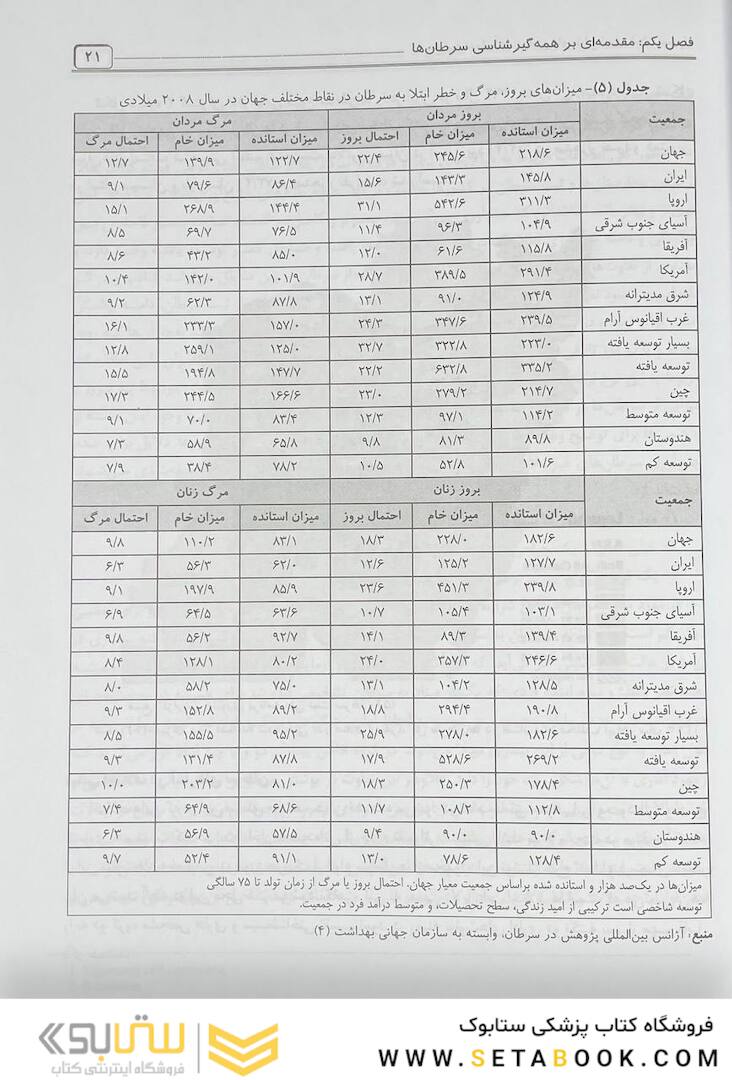 فصل یکم: مقدمه‌ای بر همه‌گیرشناسی سرطان‌ها ۲۱
جدول (۵)- میزان‌های بروز، مرگ و خطر ابتلا به سرطان در نقاط مختلف جهان در سال ۲۰۰۸ میلادی
جمعیت بروز مردان مرگ مردان
میزان استانده میزان خام احتمال بروز میزان استانده میزان خام احتمال مرگ
جهان ۲۱۸/۶ ۲۴۵/۶ ۲۲/۴ ۱۲۲/۷ ۱۳۹/۹ ۱۲/۷
ایران ۱۴۵/۸ ۱۴۳/۳ ۱۵/۶ ۸۶/۴ ۷۹/۶ ۹/۱
اروپا ۳۱۱/۳ ۵۴۲/۶ ۳۱/۱ ۱۴۴/۴ ۲۶۸/۹ ۱۵/۱
آسیای جنوب شرقی ۱۰۴/۹ ۹۶/۳ ۱۱/۴ ۷۶/۵ ۶۹/۷ ۸/۵
آفریقا ۱۱۵/۸ ۶۱/۶ ۱۲/۰ ۸۵/۰ ۴۳/۲ ۸/۶
آمریکا ۲۹۱/۴ ۳۸۹/۵ ۲۸/۷ ۱۰۱/۹ ۱۴۲/۰ ۱۰/۴
شرق مدیترانه ۱۲۴/۹ ۹۱/۰ ۱۳/۱ ۸۷/۸ ۶۲/۳ ۹/۲
غرب اقیانوس آرام ۲۳۹/۵ ۳۴۷/۶ ۲۴/۳ ۱۵۷/۰ ۲۳۳/۳ ۱۶/۱
بسیار توسعه یافته ۲۲۳/۰ ۳۲۲/۸ ۳۲/۷ ۱۲۵/۰ ۲۵۹/۱ ۱۲/۸
توسعه یافته ۳۳۵/۲ ۶۳۲/۸ ۲۲/۲ ۱۴۷/۷ ۱۹۴/۸ ۱۵/۵
چین ۲۱۴/۷ ۲۷۹/۲ ۲۳/۰ ۱۶۶/۶ ۲۴۴/۵ ۱۷/۳
توسعه متوسط ۱۱۴/۲ ۹۷/۱ ۱۲/۳ ۸۳/۴ ۷۰/۰ ۹/۱
هندوستان ۸۹/۸ ۸۱/۳ ۹/۸ ۶۵/۸ ۵۸/۹ ۷/۳
توسعه کم ۱۰۱/۶ ۵۲/۸ ۱۰/۵ ۷۸/۲ ۳۸/۴ ۷/۹
جمعیت بروز زنان مرگ زنان
میزان استانده میزان خام احتمال بروز میزان استانده میزان خام احتمال مرگ
جهان ۱۸۲/۶ ۲۲۸/۰ ۱۸/۳ ۸۳/۱ ۱۱۰/۲ ۹/۸
ایران ۱۲۷/۷ ۱۲۵/۲ ۱۲/۶ ۶۲/۰ ۵۶/۳ ۶/۳
اروپا ۲۳۹/۸ ۴۵۱/۳ ۲۳/۶ ۸۵/۹ ۱۹۷/۹ ۹/۱
آسیای جنوب شرقی ۱۰۳/۱ ۱۰۵/۴ ۱۰/۷ ۶۳/۶ ۶۴/۵ ۶/۹
آفریقا ۱۳۹/۴ ۸۹/۳ ۱۴/۱ ۹۲/۷ ۵۶/۲ ۹/۸
آمریکا ۲۴۶/۶ ۳۵۷/۳ ۲۴/۰ ۸۰/۲ ۱۲۸/۱ ۸/۴
شرق مدیترانه ۱۲۸/۵ ۱۰۴/۲ ۱۳/۱ ۷۵/۰ ۵۸/۲ ۸/۰
غرب اقیانوس آرام ۱۹۰/۸ ۲۹۴/۴ ۱۸/۸ ۸۹/۲ ۱۵۲/۸ ۹/۳
بسیار توسعه یافته ۱۸۲/۶ ۲۷۸/۰ ۲۵/۹ ۹۵/۲ ۱۵۵/۵ ۸/۵
توسعه یافته ۲۶۹/۲ ۵۲۸/۶ ۱۷/۹ ۸۷/۸ ۱۳۱/۴ ۹/۳
چین ۱۷۸/۴ ۲۵۰/۳ ۱۸/۳ ۸۱/۰ ۲۰۳/۲ ۱۰/۰
توسعه متوسط ۱۱۲/۸ ۱۰۸/۲ ۱۱/۷ ۶۸/۶ ۶۴/۹ ۷/۴
هندوستان ۹۰/۰ ۹۰/۰ ۹/۴ ۵۷/۵ ۵۶/۹ ۶/۳
توسعه کم ۱۲۸/۴ ۷۸/۶ ۱۳/۰ ۹۱/۱ ۵۲/۴ ۹/۷
میزان‌ها در یک‌صد هزار و استانده شده براساس جمعیت معیار جهان. احتمال بروز یا مرگ از زمان تولد تا ۷۵ سالگی
توسعه شاخصی است ترکیبی از امید زندگی، سطح تحصیلات، و متوسط درآمد فرد در جمعیت.
منبع: آژانس بین‌المللی پژوهش در سرطان، وابسته به سازمان جهانی بهداشت (۴)
فروشگاه کتاب پزشکی ستابوک
WWW.SETABOOK.COM
ستابوک
فروشگاه اینترنتی کتاب